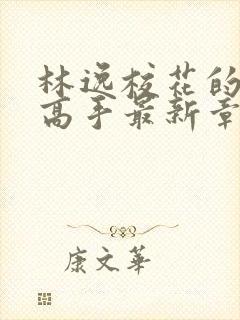 林逸校花的
高手最新章
康文华